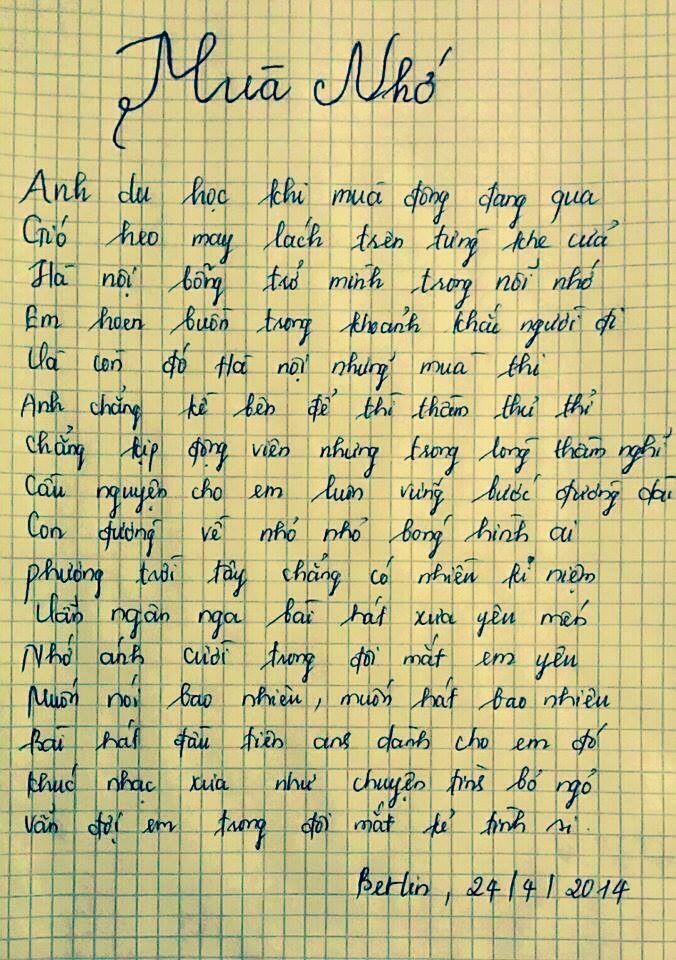 Mùa Nhớ
Anh du học khi mùa đông đang qua
Gió heo may lách trên từng khe cửa
Hà nội bỗng trở mình trong nỗi nhớ
Em hoen buồn trong khoảnh khắc người đi
Và còn đó Hà nội những mùa thi
Anh chẳng kề bên để thì thầm thủ thỉ
chẳng kịp động viên nhưng trong lòng thầm nghĩ
Cầu nguyện cho em luôn vững bước đường dài
Con đường về nho nhỏ bóng hình ai
phương trời tây chẳng có nhiều kỉ niệm
Vẫn ngân nga bài hát xưa yêu mến
Nhớ ánh cười trong đôi mắt em yêu
Muốn nói bao nhiêu, muốn hát bao nhiêu
Bài hát đầu tiên anh dành cho em đó
khúc nhạc xưa như chuyện tình bỏ ngỏ
Vẫn đợi em trong đôi mắt kẻ tình si.
Berlin, 24/4/2014